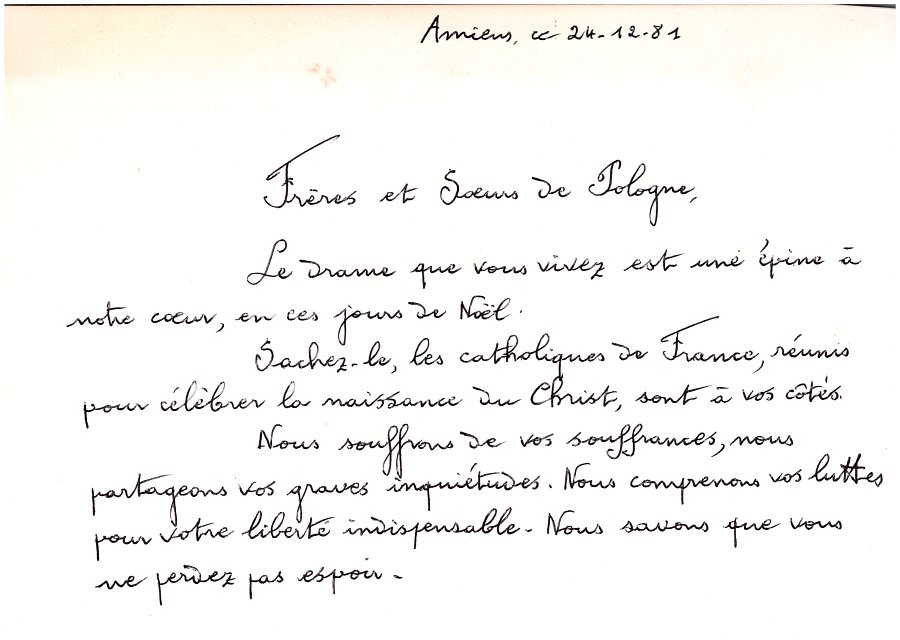 Amiens, ce 24-12-81
Frères et Sœurs de Pologne,
Le drame que vous vivez est une épine à
notre cœur, en ces jours de Noël.
Sachez-le, les catholiques de France, réunis
pour célébrer la naissance du Christ, sont à vos côtés.
Nous souffrons de vos souffrances, nous
partageons vos graves inquiétudes. Nous comprenons vos luttes
pour votre liberté indispensable. Nous savons que vous
ne perdez pas espoir.